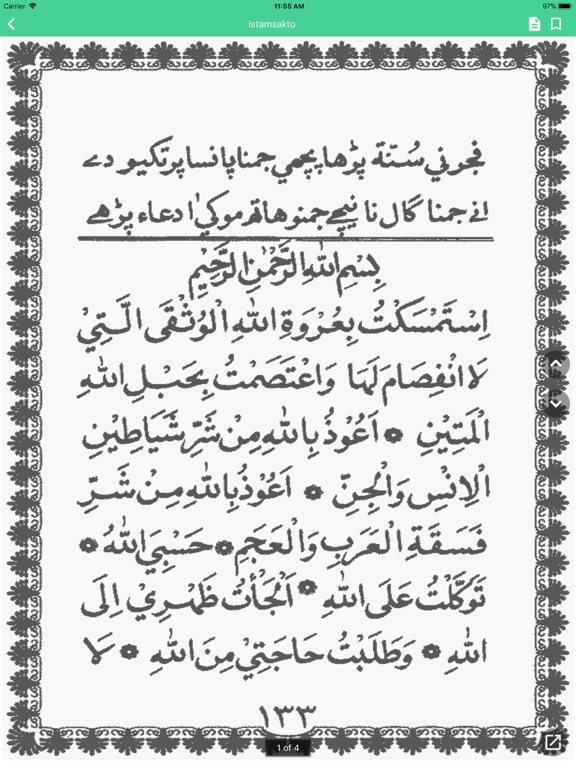 Carrier 11:55 AM 97%
Istamsakto
فجرني سُنّة پڑها پچهي جمنا پانسا پر تكيو دے
انے جمنا گال نا نيچے جمنو هاتھ موكي ا دعاء پڑهے
بِسْمِ اللهِ الرَّحْمٰنِ الرَّحِيْمِ
اِسْتَمْسَكْتُ بِعُرْوَةِ اللهِ الْوُثْقَى الَّتِيْ
لَا انْفِصَامَ لَهَا وَاعْتَصَمْتُ بِحَبْلِ اللهِ
الْمَتِيْنِ ۞ اَعُوْذُ بِاللهِ مِنْ شَرِّ شَيَاطِيْنِ
الْاِنْسِ وَالْجِنِّ ۞ اَعُوْذُ بِاللهِ مِنْ شَرِّ
فَسَقَةِ الْعَرَبِ وَالْعَجَمِ ۞ حَسْبِيَ اللهُ ۞
تَوَكَّلْتُ عَلَى اللهِ ۞ اَلْجَأْتُ ظَهْرِيْ اِلَى
اللهِ ۞ وَطَلَبْتُ حَاجَتِيْ مِنَ اللهِ ۞ لَا
١٣٣
1 of 4